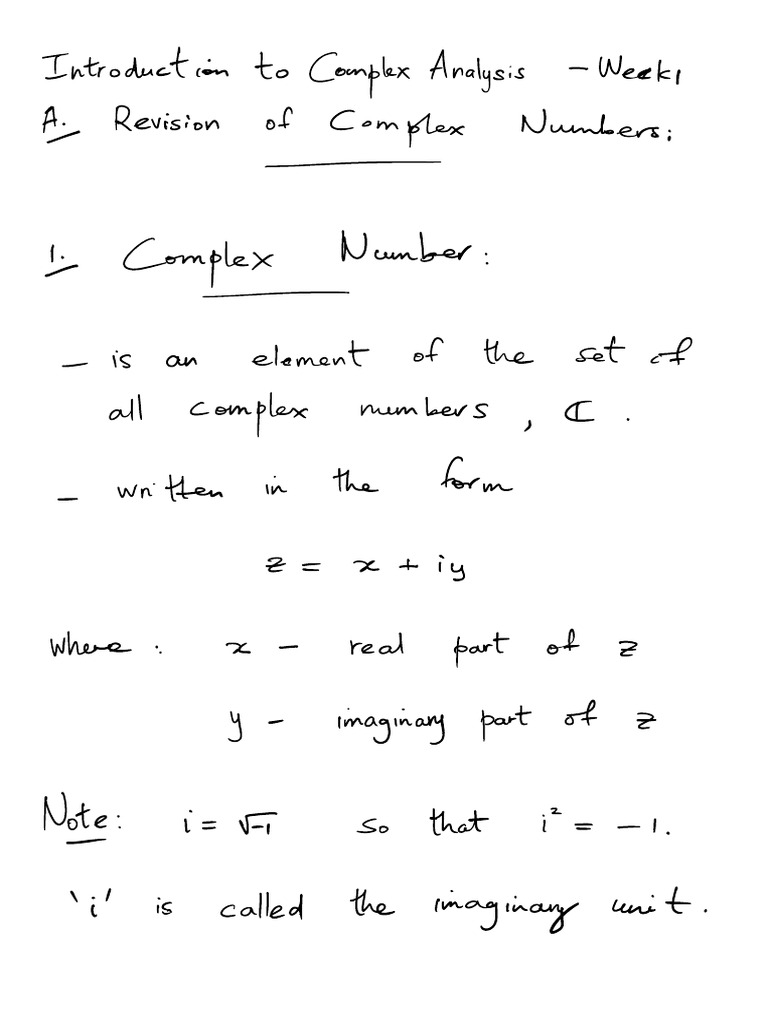 Introduction to Complex Analysis - Week 1
A. Revision of Complex Numbers:
1. Complex Number:
- is an element of the set of
all complex numbers, ℂ.
- written in the form
z = x + iy
where: x - real part of z
y - imaginary part of z
Note: i = √-1 so that i² = -1.
'i' is called the imaginary unit.